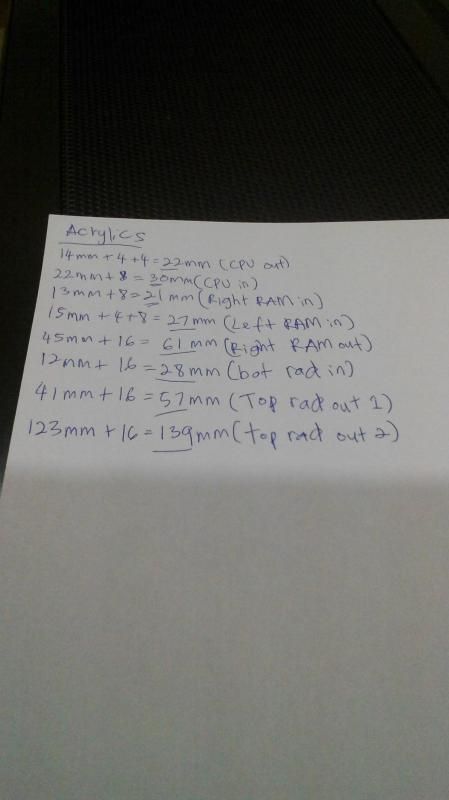 Acrylics
14mm + 4 + 4 = 22mm (CPU out)
22mm + 8 = 30mm (CPU in)
13mm + 8 = 21mm (Right RAM in)
15mm + 4 + 8 = 27mm (Left RAM in)
45mm + 16 = 61mm (Right RAM out)
12mm + 16 = 28mm (bot rad in)
41mm + 16 = 57mm (Top rad out 1)
123mm + 16 = 139mm (top rad out 2)